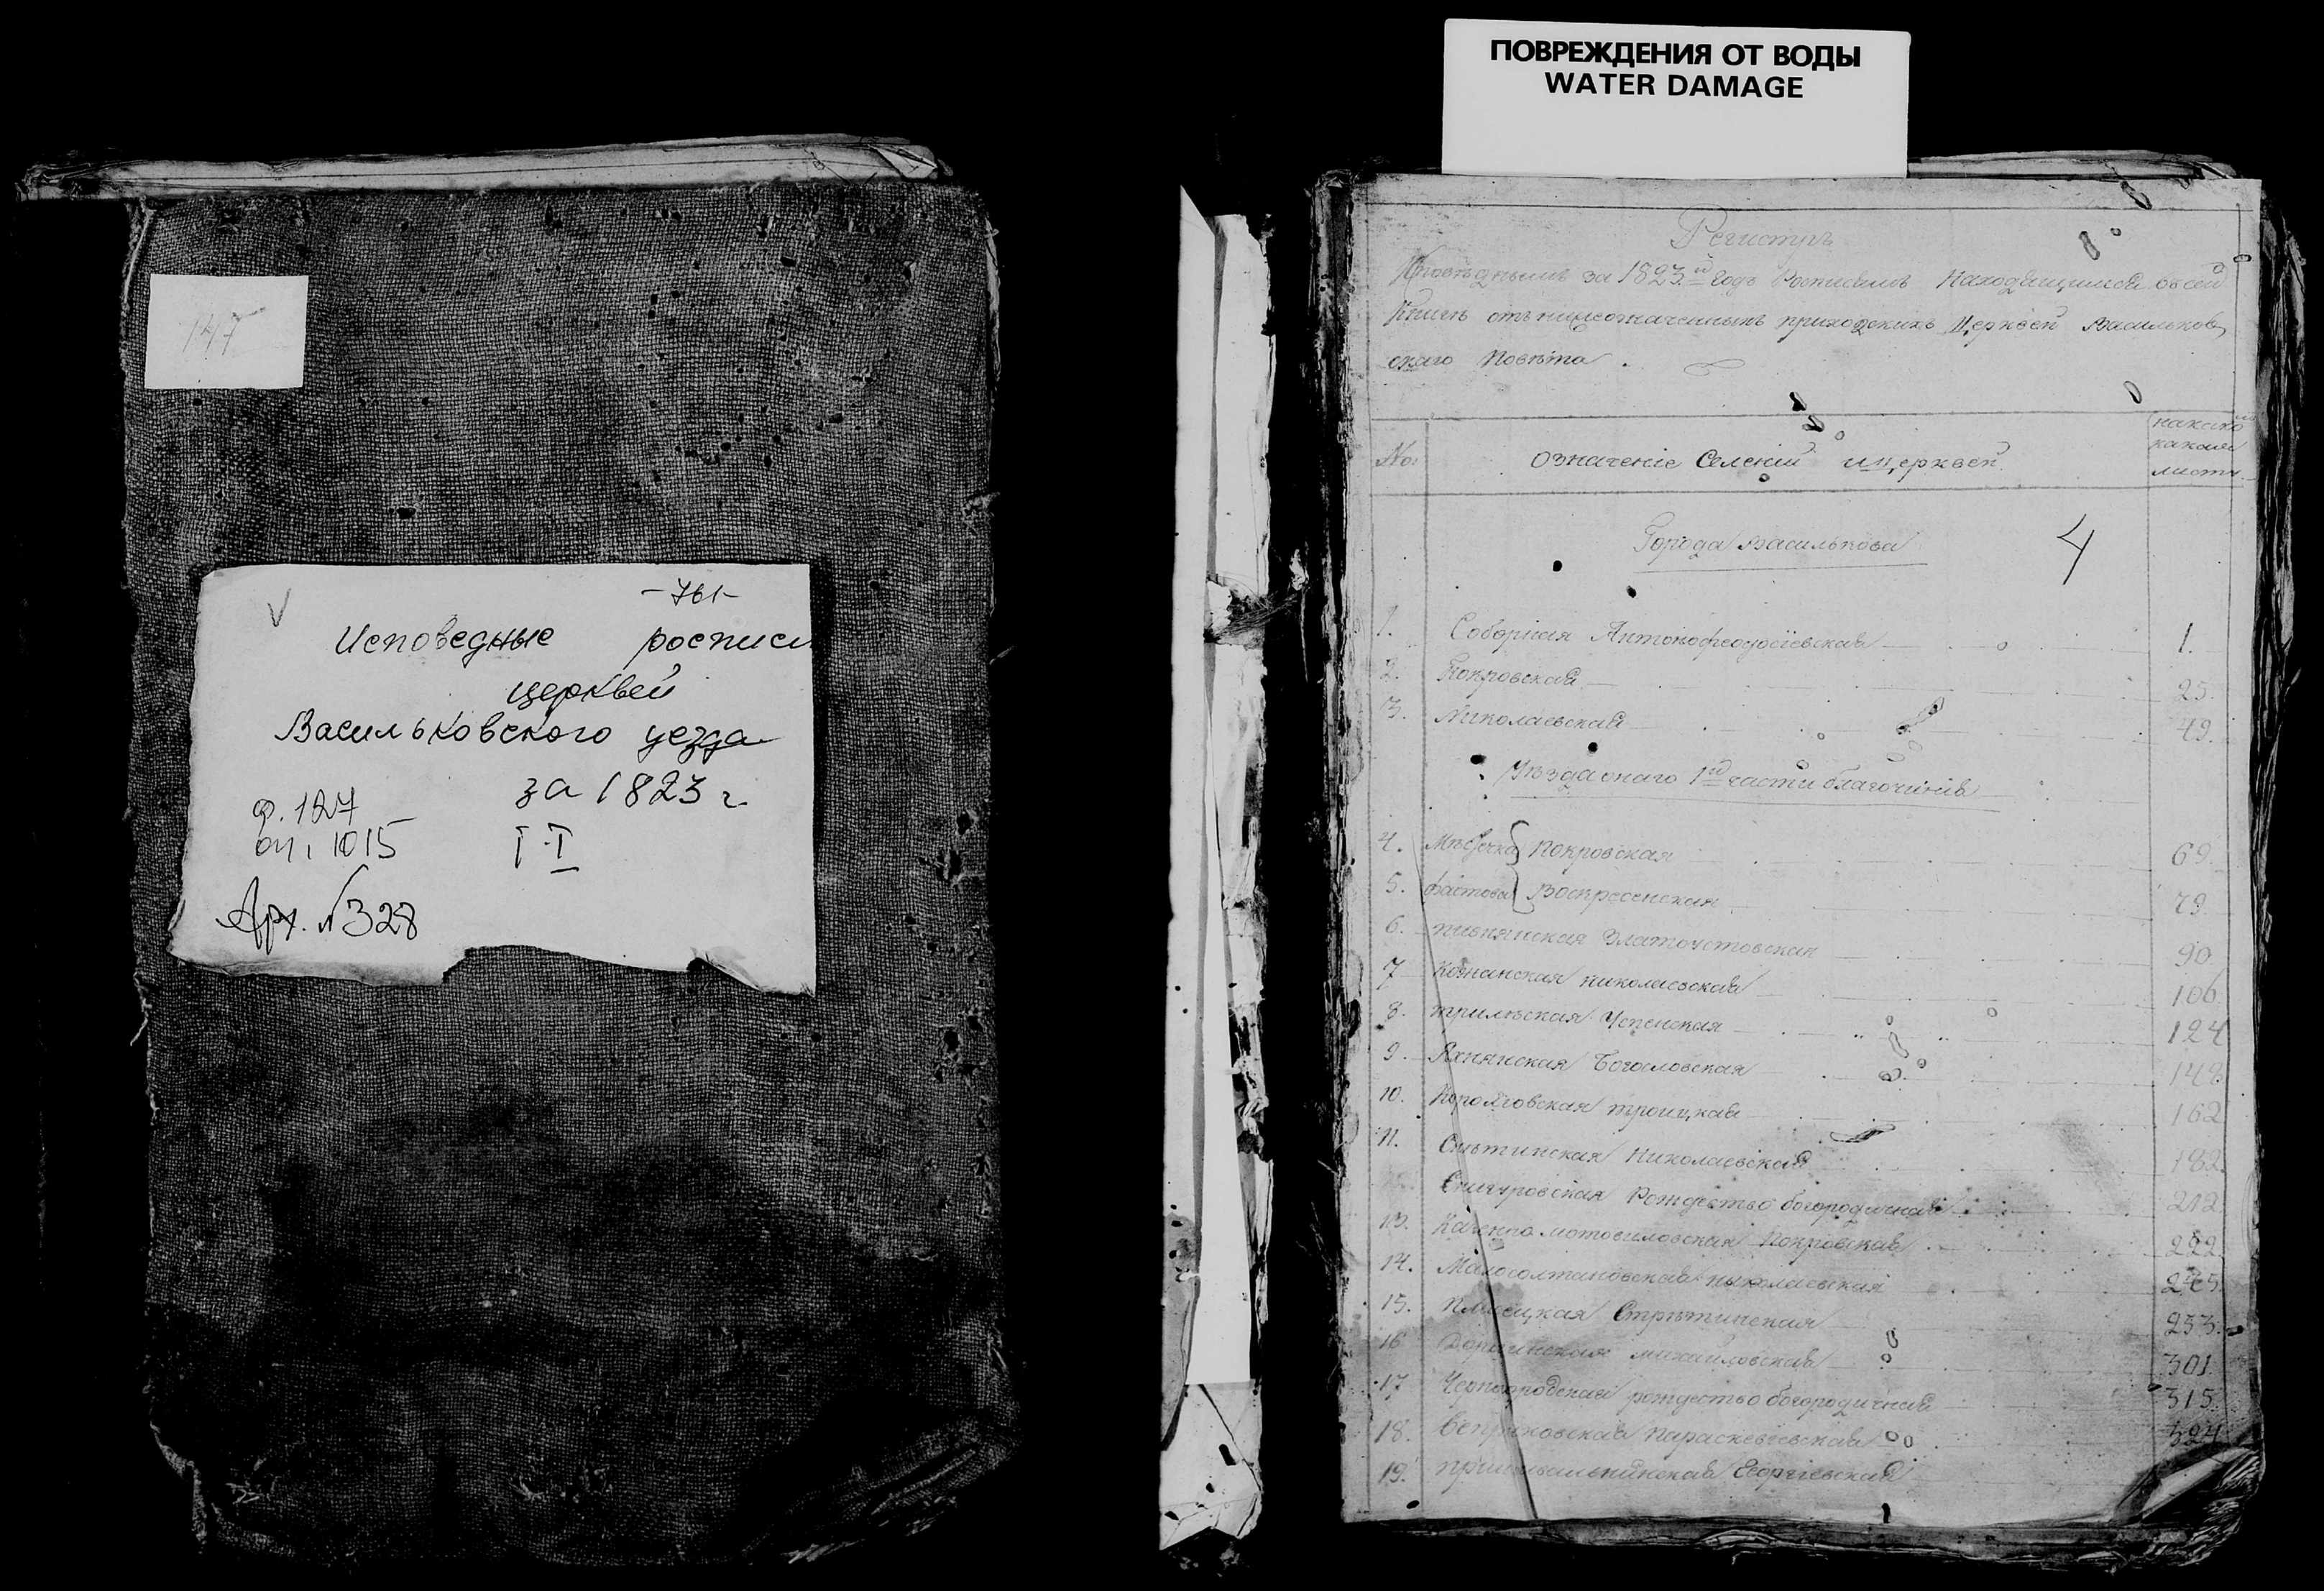 147
-761-
V
Исповедные росписи
церквей
Васильковского уезда
за 1823 г.
ф. 127
оп. 1015
Арх. №328
ПОВРЕЖДЕНИЯ ОТ ВОДЫ
WATER DAMAGE
Регистръ
Исповѣднымъ за 1823й годъ Росписямъ Находящимся въ сей
Книгѣ отъ нижеозначенныхъ приходскихъ Церквей Васильков
скаго Повѣта.
No. означеніе Селеній и церквей
листи
4
Города Василькова
1. Соборная Антонофеодосіевская 1.
2. Покровская 25.
3. Николаевская 49.
Уѣзда онаго 1й части благочинія
4. Мѣстечка Покровская 69.
5. Фастова Воскресенская 79.
6. Златоустовская 90
7 Кожанская Николаевская 106.
8. Трилѣская Успенская 124
9. Яхнянская Богословская 148.
10. Троицкая 162
11. Снѣтинская Николаевская 182
Снигуровская Рождество богородичная 212
13. мотовиловская Покровская 222.
14. Малосолтановская николаевская 245
15. Плисецкая Стрѣтинская 253.
16 михайловская 301.
17 Черногородская рождество богородичная 315.
18. Веприковская Параскевіевская 324
19. Георгіевская